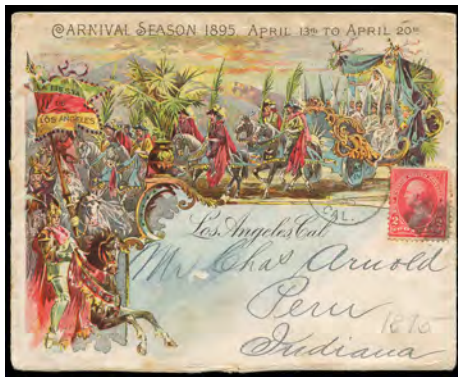 CARNIVAL SEASON 1895 APRIL 13TH TO APRIL 20TH
LA FIESTA
DE
LOS ANGELES
CAL.
2
Los Angeles Cal
Mr Chas Arnold
Peru
1895
Indiana